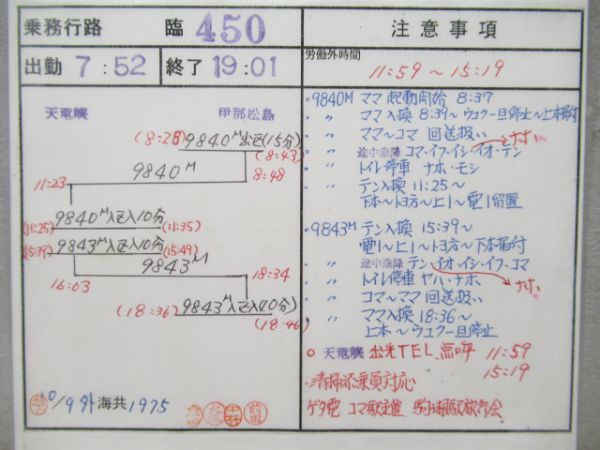 乗務行路 臨 450
出勤 7:52 終了 19:01
天竜峡 伊那松島
(8:28) 9840M出区(15分)
(8:43)
9840M 8:48
11:23
9840M入区入10分
(11:25) (11:35)
9843M入区入10分
(15:39) (15:49)
9843M
18:34
16:03
(18:36) 9843M入区入(10分)
(18:46)
10/9 外 海共1975
注意事項
労働外時間
11:59〜15:19
・9840M ママ 起動開始 8:37
〃 ママ入換 8:39〜ウェクー旦停止〜上本据付
〃 ママ〜コマ 回送扱い
〃 途中乗降 コマ・イフ・イシ・イオ・テン ナホ
〃 トイレ停車 ナホ・モシ
〃 テン入換 11:25〜
下本〜トヨ方〜上1〜電1留置
・9843M テン入換 15:39〜
電1〜上1〜トヨ方〜下本据付
〃 途中乗降 テン・イオ・イシ・イフ・コマ
〃 トイレ停車 ヤハ・ナホ ナホ
〃 コマ〜ママ 回送扱い
〃 ママ入換 18:36〜
上本〜ウェクー旦停止
○ 天竜峡 出先TEL 点呼 11:59
15:19
・清掃添乗員対応
ゲタ電 コマ駅主催 駒ヶ根駅放台会